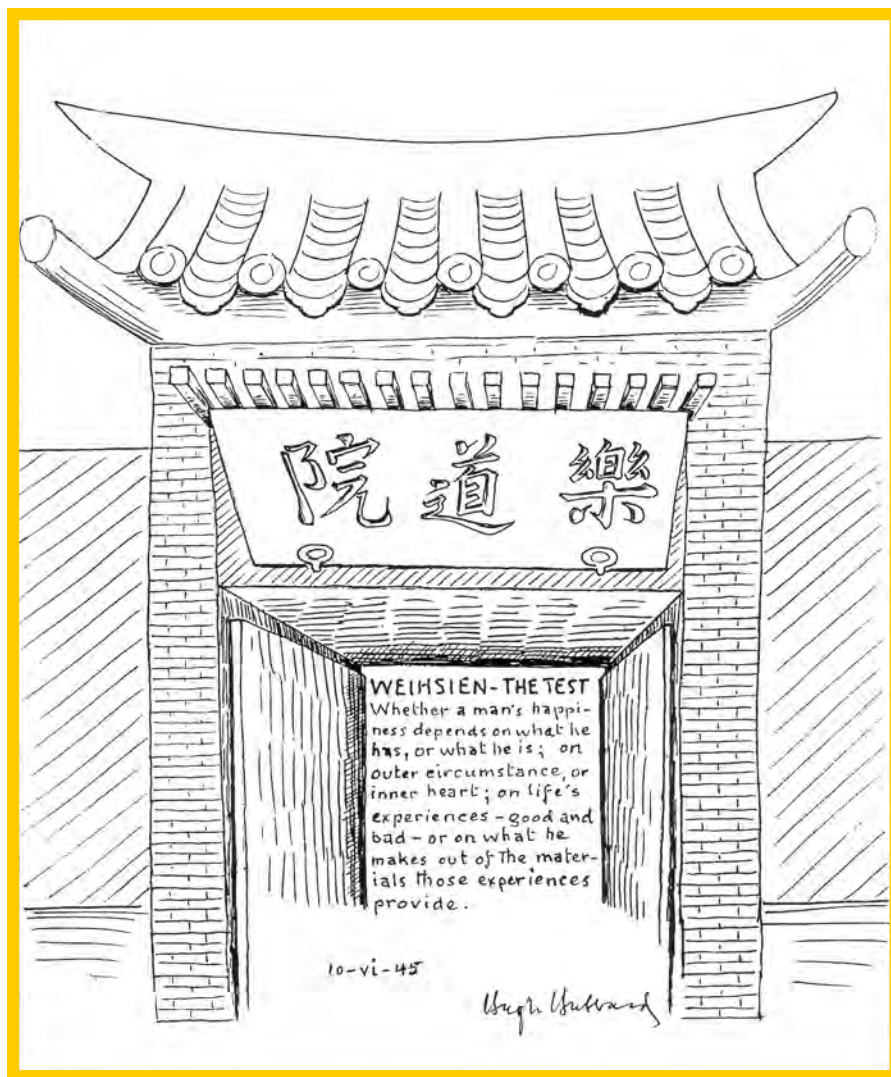 樂道院
WEIHSIEN-THE TEST
Whether a man's happi-
ness depends on what he
has, or what he is; on
outer circumstance, or
inner heart; on life's
experiences - good and
bad - or on what he
makes out of The mater-
ials those experiences
provide.
10-vi-45
Hugh Hubbard